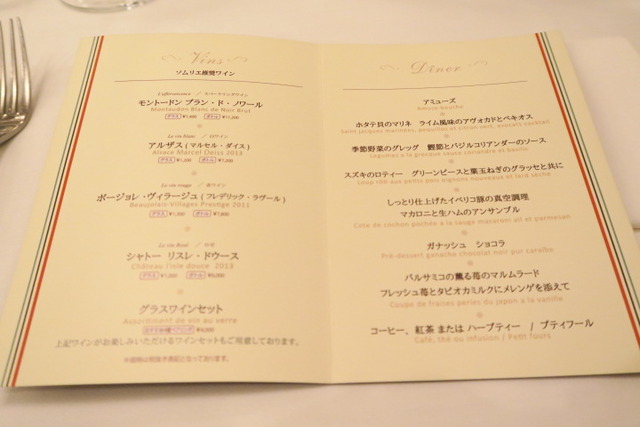 Vins
ソムリエ推奨ワイン
モントードン ブラン・ド・ノワール
Montaudon Blanc de Noir Brut
グラス ボトル
Le vin blanc / 白ワイン
アルザス ( マルセル・ダイス )
Alsace Marcel Deiss 2013
グラス ボトル ¥7,200
Le vin rouge / 赤ワイン
ボージョレ・ヴィラージュ ( フレデリック・ラヴール )
Beaujolais-Villages Prestige 2011
グラス ボトル
Le vin Rosé / ロゼ
シャトー リスレ・ドウース
Château l'isle douce 2013
グラス ボトル
グラスワインセット
Assortiment de vin au verre
¥4,000
上記ワインがお楽しみいただけるワインセットもご用意しております。
Dîner
アミューズ
Amuse-bouche
ホタテ貝のマリネ ライム風味のアヴォカドとペキオス
季節野菜のグレッグ 鰹節とバジルコリアンダーのソース
Légumes à la grecque sauce coriandre et basilic
スズキのロティー グリーンピースと葉玉ねぎのグラッセと共に
しっとり仕上げたイベリコ豚の真空調理
マカロニと生ハムのアンサンブル
ガナッシュ ショコラ
Pré-dessert ganache chocolat noir pur caraïbe
バルサミコの薫る苺のマルムラード
フレッシュ苺とタピオカミルクにメレンゲを添えて
Coupe de fraises perles du japon a la vanille
コーヒー、紅茶 または ハーブティー / プティフール
Café, thé ou infusion / Petit fours